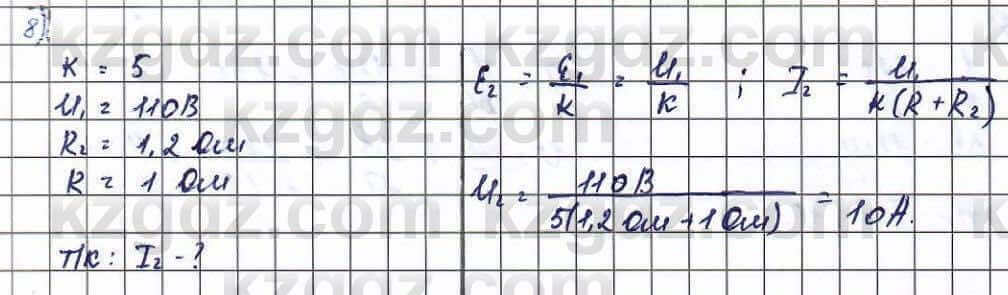 8)
K = 5
U₁ = 110В
R₂ = 1,2 Ом
R = 1 Ом
Т/к: I₂ - ?
ℰ₂ = ℰ₁/K = U₁/K ; I₂ = U₁/K(R + R₂)
U₂ = 110В/5(1,2 Ом + 1 Ом) = 10А.
kzgdz.com kzgdz.com
kzgdz.com
kzgdz.com kzgdz.com